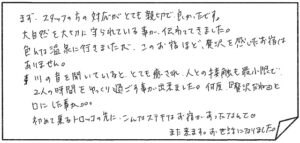 まず、スタッフの方の対応がとても親切で良かったです。
大自然を大切に守られている事が、伝わってきました。
色んな温泉に行きましたが、このお宿ほど、贅沢を感じたお宿は
ありません。
川の音を聞いていると、とても癒され、人との接触も最小限で、
2人の時間をゆっくり過ごす事が出来ました。何度「贅沢だね」と
口にした事か。。。
初めて乗るトロッコの先に、こんなステキなお宿があったなんて。
また来ます。お世話になりました。